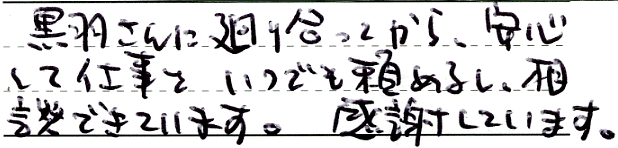 黒羽さんに廻り合ってから、安心
して仕事を いつでも頼めるし、相
談できています。 感謝しています。